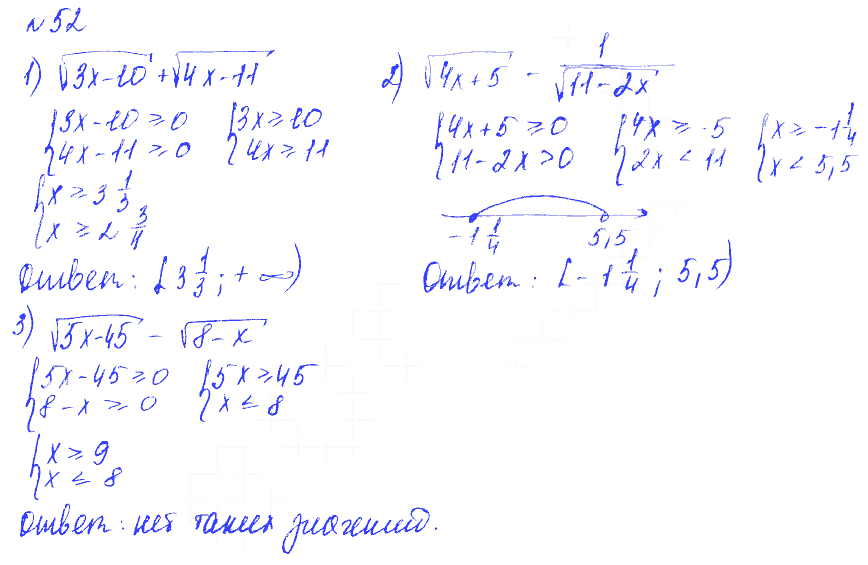 №52
1) √(3x-10) + √(4x-11)
{3x-10 ≥ 0 {3x ≥ 10
{4x-11 ≥ 0 {4x ≥ 11
{x ≥ 3 1/3
{x ≥ 2 3/4
Ответ: [3 1/3; +∞)
2) √(4x+5) - 1/√(11-2x)
{4x+5 ≥ 0 {4x ≥ -5 {x ≥ -1 1/4
{11-2x > 0 {2x < 11 {x < 5,5
-1 1/4 5,5
Ответ: [-1 1/4; 5,5)
3) √(5x-45) - √(8-x)
{5x-45 ≥ 0 {5x ≥ 45
{8-x ≥ 0 {x ≤ 8
{x ≥ 9
{x ≤ 8
Ответ: нет таких значений.